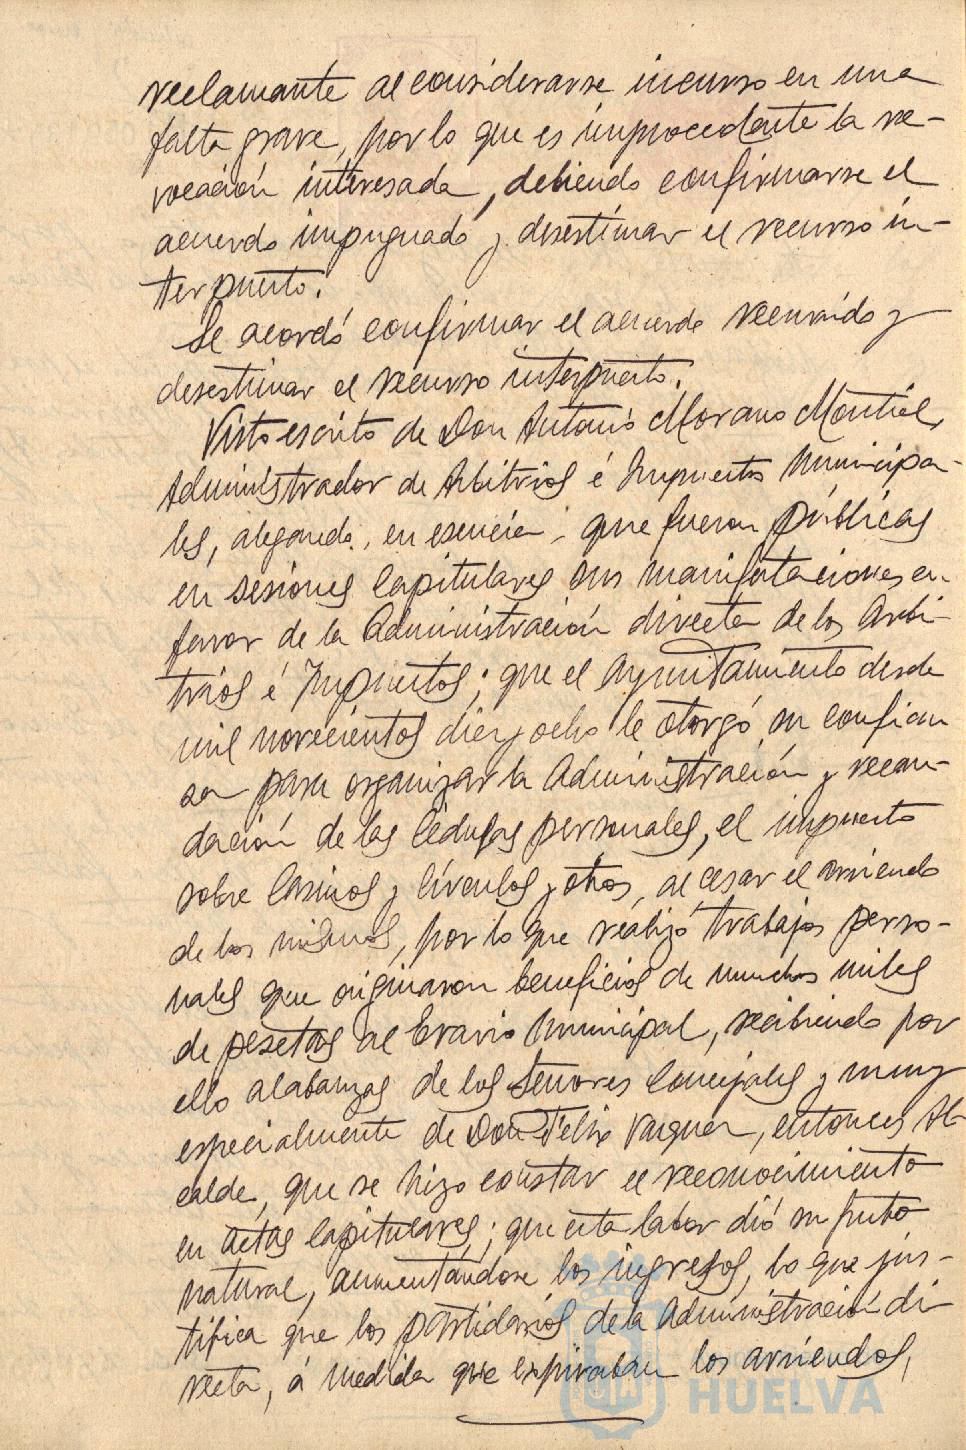 reclamante al considerarse incurso en una
falta grave, por lo que es improcedente la re-
vocación interesada, debiendo confirmarse el
acuerdo impugnado y desestimar el recurso in-
terpuesto.
Se acordó confirmar el acuerdo recurrido y
desestimar el recurso interpuesto.
Visto escrito de Don Antonio Morano Montiel,
Administrador de Arbitrios é Impuestos Municipa-
les, alegando, en esencia, que fueron públicas
en sesiones Capitulares sus manifestaciones en
favor de la Administración directa de los Arbi-
trios é Impuestos; que el Ayuntamiento desde
mil novecientos diez y ocho le otorgó su confian
za para organizar la Administración y recau-
dación de las Cédulas personales, el impuesto
sobre Casinos y Círculos y otros, al cesar el arriendo
de los mismos, por lo que realizó trabajos perso-
nales que originaron beneficios de muchos miles
de pesetas al Erario Municipal, recibiendo por
ello alabanzas de los Señores Concejales y muy
especialmente de Don Felix Vazquez, entonces Al
calde, que se hizo constar el reconocimiento
en actas Capitulares; que esta labor dió su fruto
natural, aumentándose los ingresos, lo que jus-
tifica que los partidarios de la Administración di
recta, á medida que expiraban los arriendos,
HUELVA